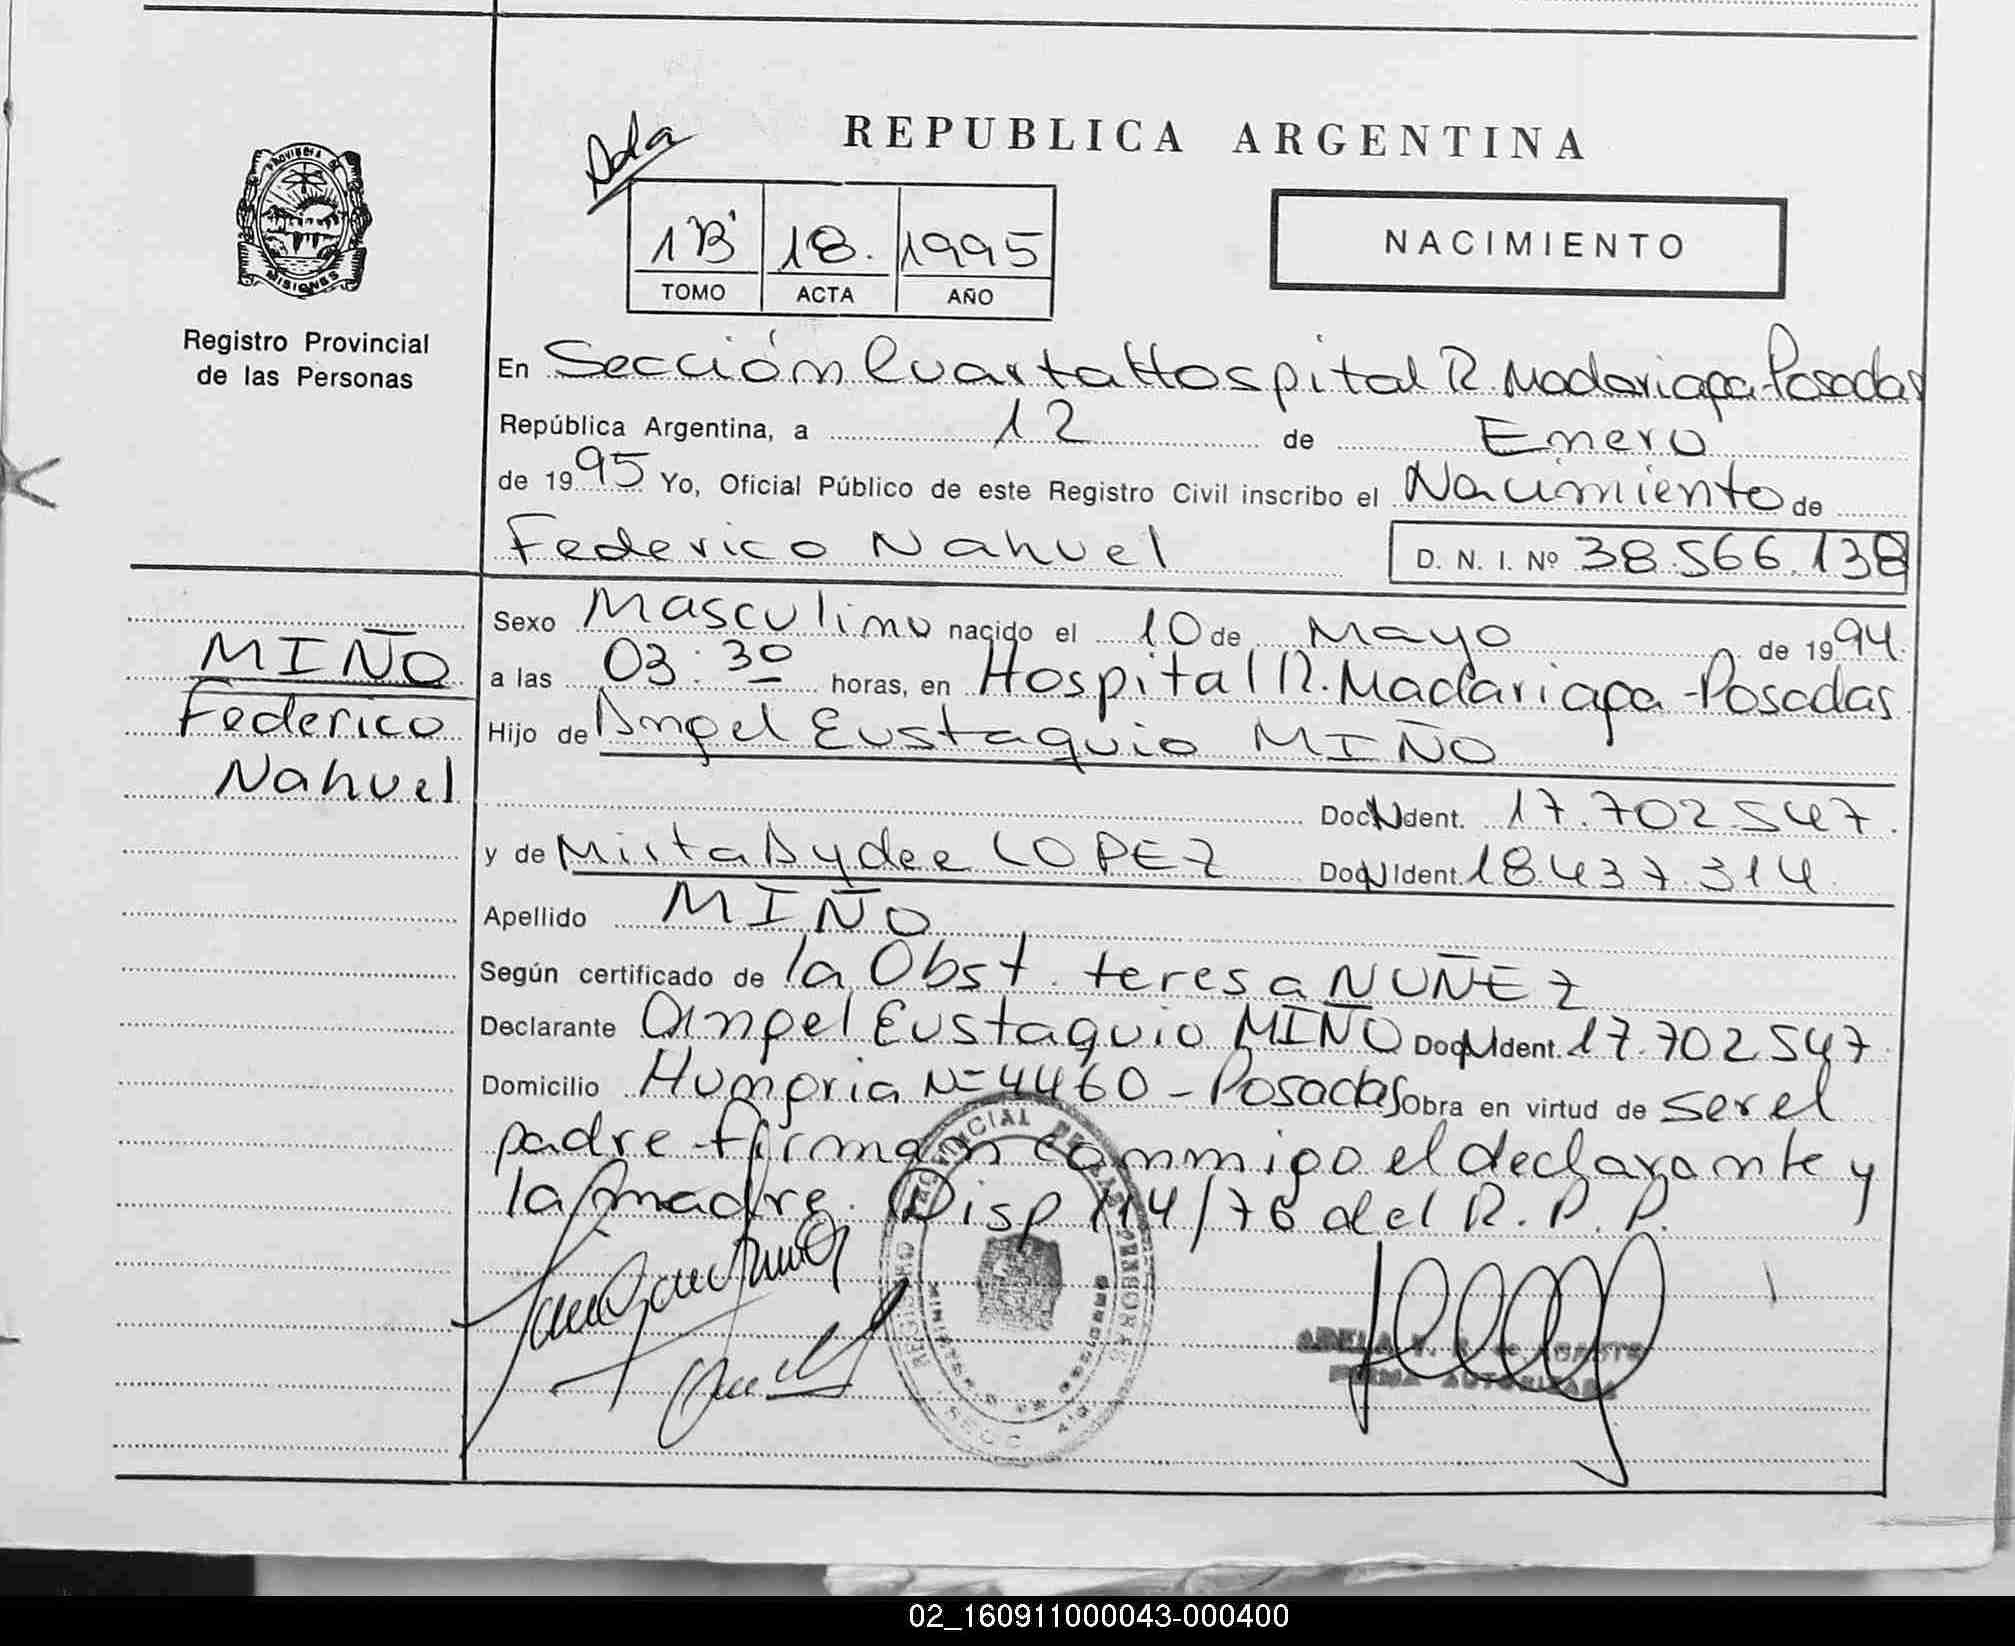 REPUBLICA ARGENTINA
1B' 18. 1995
TOMO ACTA AÑO
NACIMIENTO
PROVINCIA DE MISIONES
Registro Provincial
de las Personas
En Sección Cuarta Hospital R. Madariaga-Posadas
República Argentina, a 12 de Enero
de 1995 Yo, Oficial Público de este Registro Civil inscribo el Nacimiento de
Federico Nahuel D. N. I. Nº 38.566.138
MIÑO
Federico
Nahuel
Sexo Masculino nacido el 10 de Mayo de 1994.
a las 03:30 horas, en Hospital R. Madariaga-Posadas
Hijo de Angel Eustaquio MIÑO
Doc. N Ident. 17.702.547.
y de Mirta Aydee LOPEZ Doc. N Ident. 18.437.314.
Apellido MIÑO
Según certificado de la Obst. teresa NUÑEZ
Declarante Angel Eustaquio MIÑO Doc. N Ident. 17.702.547.
Domicilio Humgria Nº 4460 - Posadas Obra en virtud de ser el
padre firman commigo el declarante y
la madre. Disp 114/76 del R.P.P.
REGISTRO PROVINCIAL DE LAS PERSONAS
MINISTERIO DE GOBIERNO
FIRMA AUTORIZADA
02_160911000043-000400